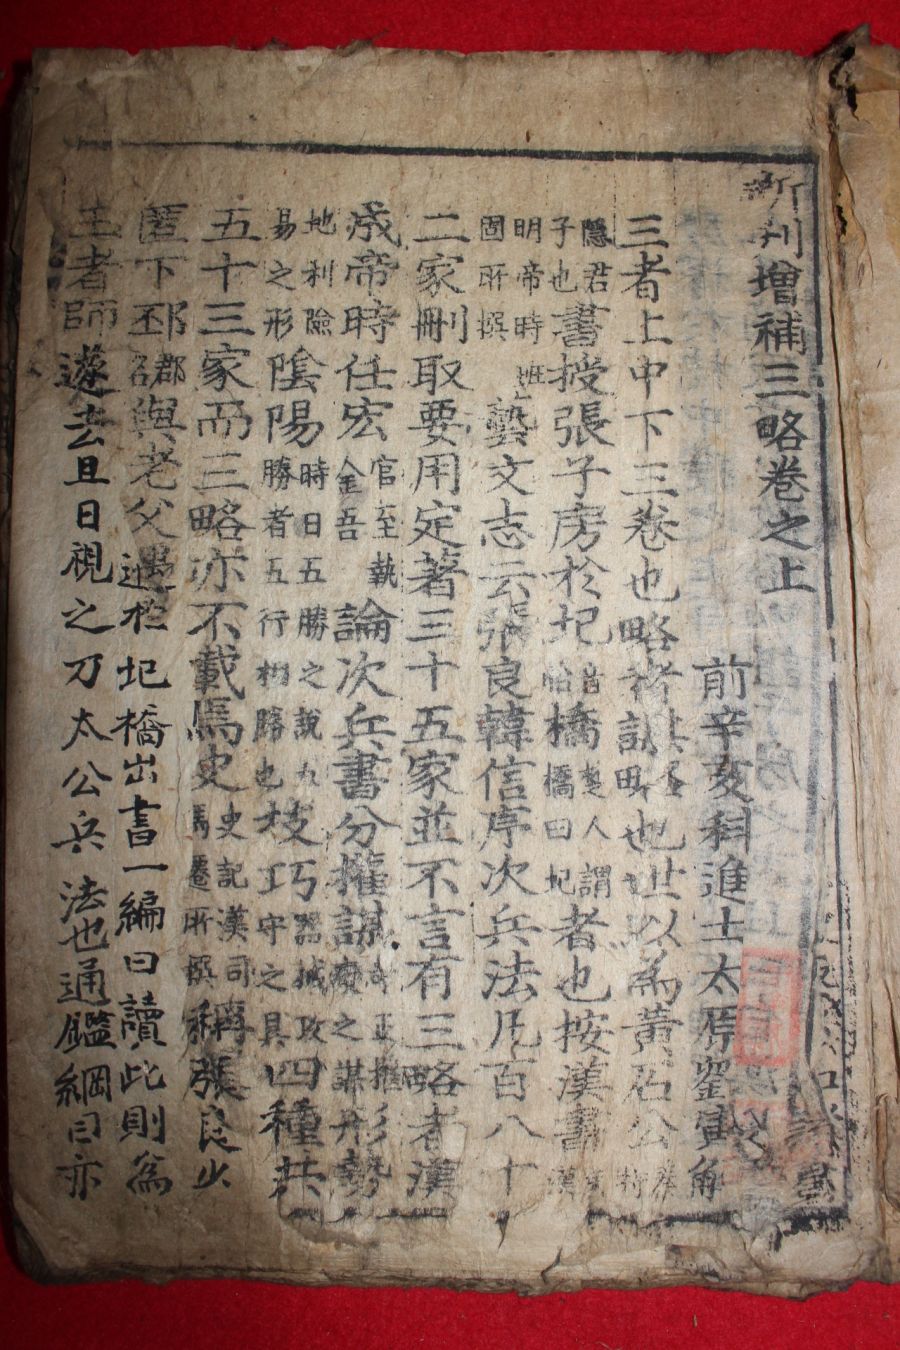 新刋增補三略卷之上
前辛亥科進士太原劉寅解
三者上中下三卷也略者謀略也世以為黃石公秦時
隱君子也書授張子房於圯音怡橋楚人謂橋曰圯者也按漢書漢
明帝時班固所撰藝文志云張良韓信序次兵法凡百八十
二家刪取要用定著三十五家並不言有三略者漢
成帝時任宏官至執金吾論次兵書分權謀之謀形勢
地利險易之形陰陽時日五勝之說勝者五行相勝也技巧器械攻守之具四種共
五十三家而三略亦不載馬史史記漢司馬遷所撰稱張良少
匿下邳郡名與老父遇於圯橋出書一編曰讀此則爲
王者師遂去旦日視之乃太公兵法也通鑑綱目亦